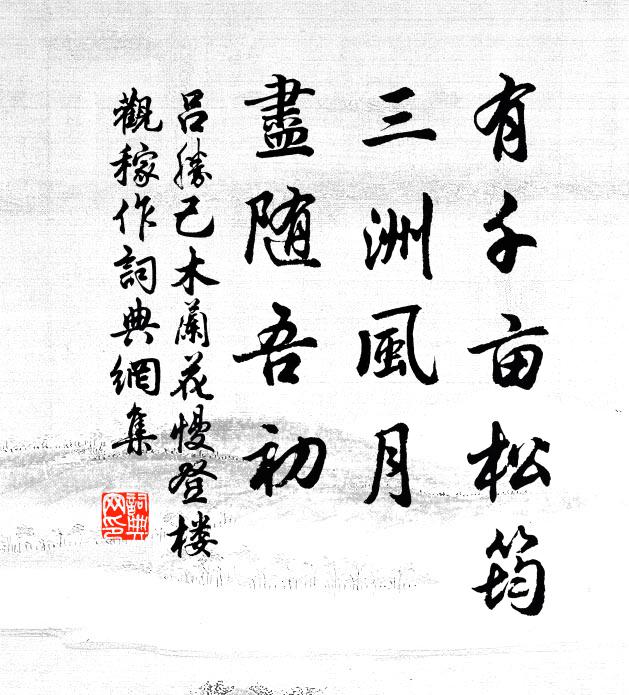 有千亩松筠
三洲風月
盡随吾初
吕勝己木蘭花慢登楼
觀稼作詞典網集
詞典網印